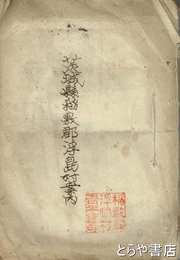 茨城縣稲敷郡浮島村案内
とらや書店